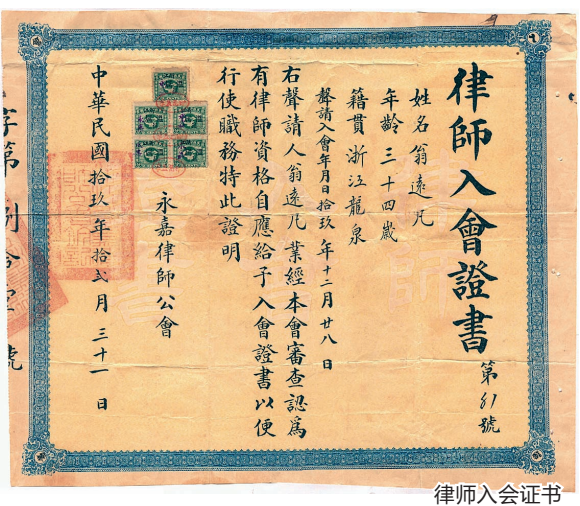 律師入會證書
第81號
姓名翁遠凡
年齡三十四歲
籍貫浙江龍泉
聲請入會年月日拾玖年十二月廿八日
右聲請人翁遠凡業經本會審查認爲
有律師資格自應給予入會證書以便
行使職務特此證明
永嘉律師公會
中華民國拾玖年拾弍月三十一日
字第捌拾壹號
律师入会证书